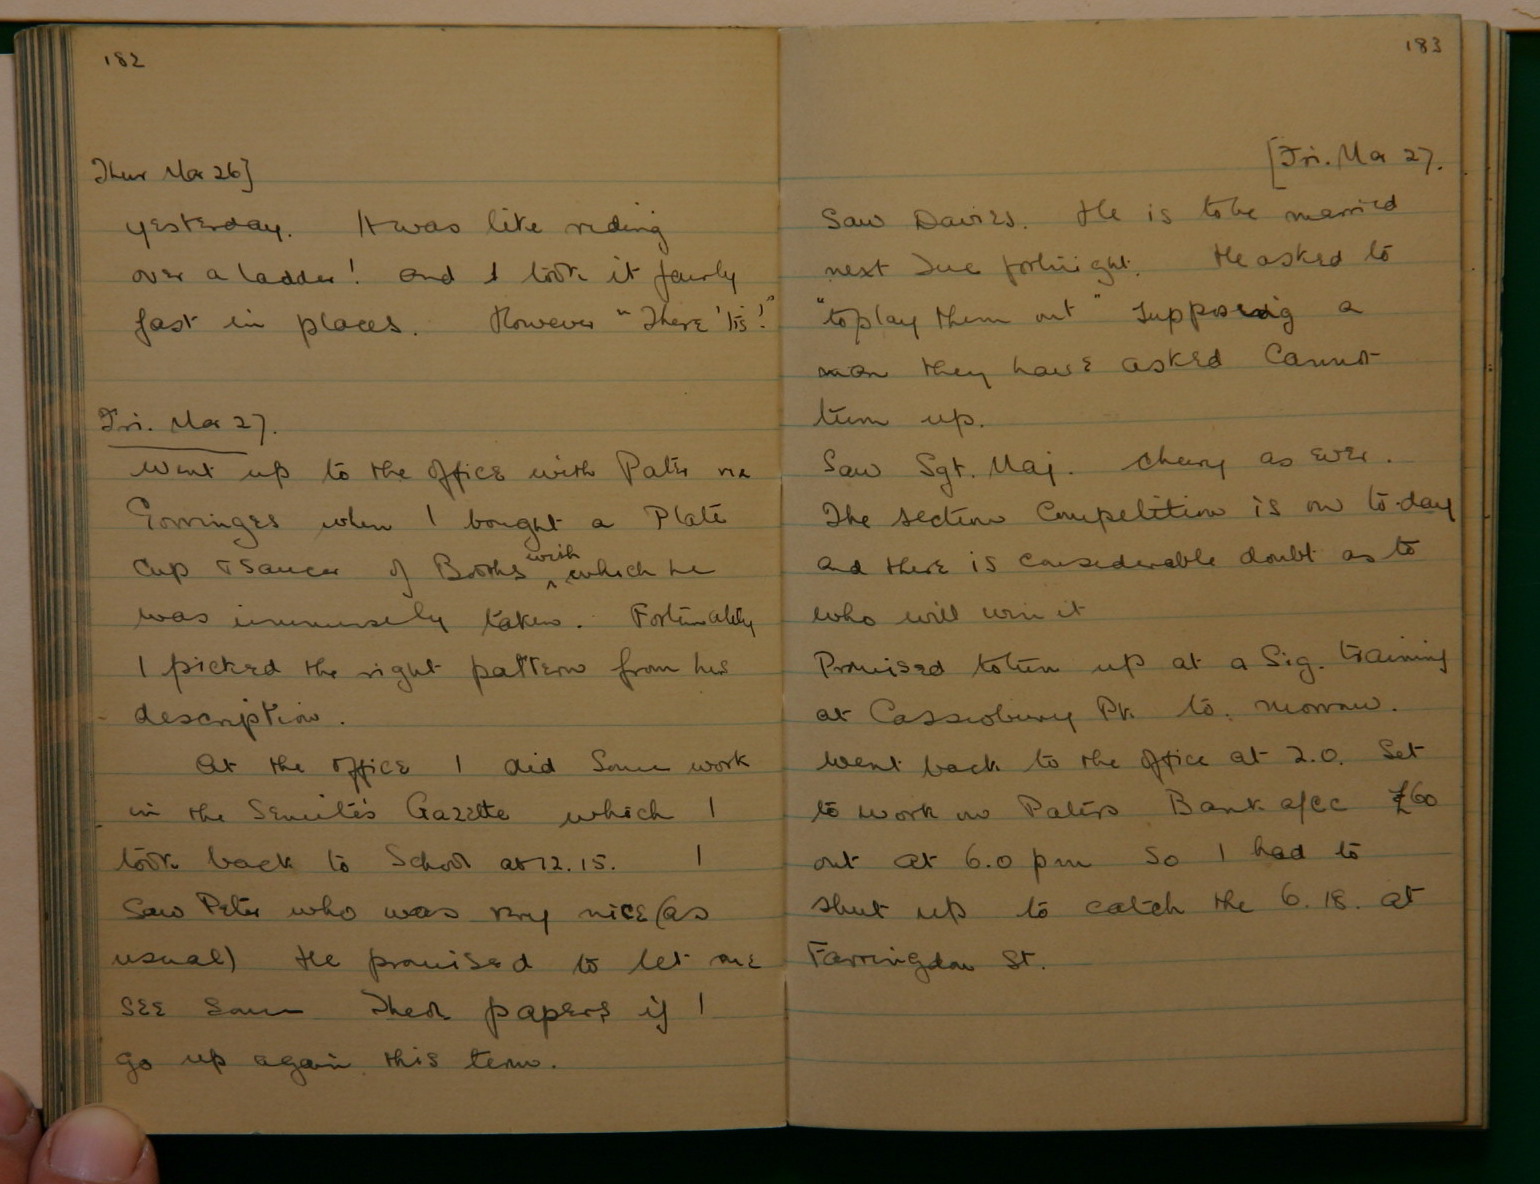 182
Thur Mar 26]
yesterday. It was like riding
over a ladder! and I took it fairly
fast in places. However "There 'tis!"
Fri. Mar 27.
Went up to the office with Pater via
Gorringes when I bought a Plate
Cup & Saucer of Booths with which he
was immensely taken. Fortunately
I picked the right pattern from his
description.
At the office I did some work
in the Gazette which I
took back to School at 12.15. I
saw Peter who was very nice (as
usual) He promised to let me
see some Theol papers if I
go up again this term.
183
[Fri. Mar 27.
Saw Davies. He is to be married
next Tue fortnight. He asked to
"to play them out" supposing a
man they have asked cannot
turn up.
Saw Sgt. Maj. cheery as ever.
The section Competition is on to-day
and there is considerable doubt as to
who will win it
Promised to turn up at a Sig. training
at Cassiobury Pk to. morrow.
Went back to the office at 2.0. Set
to work on Paters Bank a/cc £60
out at 6.0 pm So I had to
shut up to catch the 6.18. at
Farringdon St.